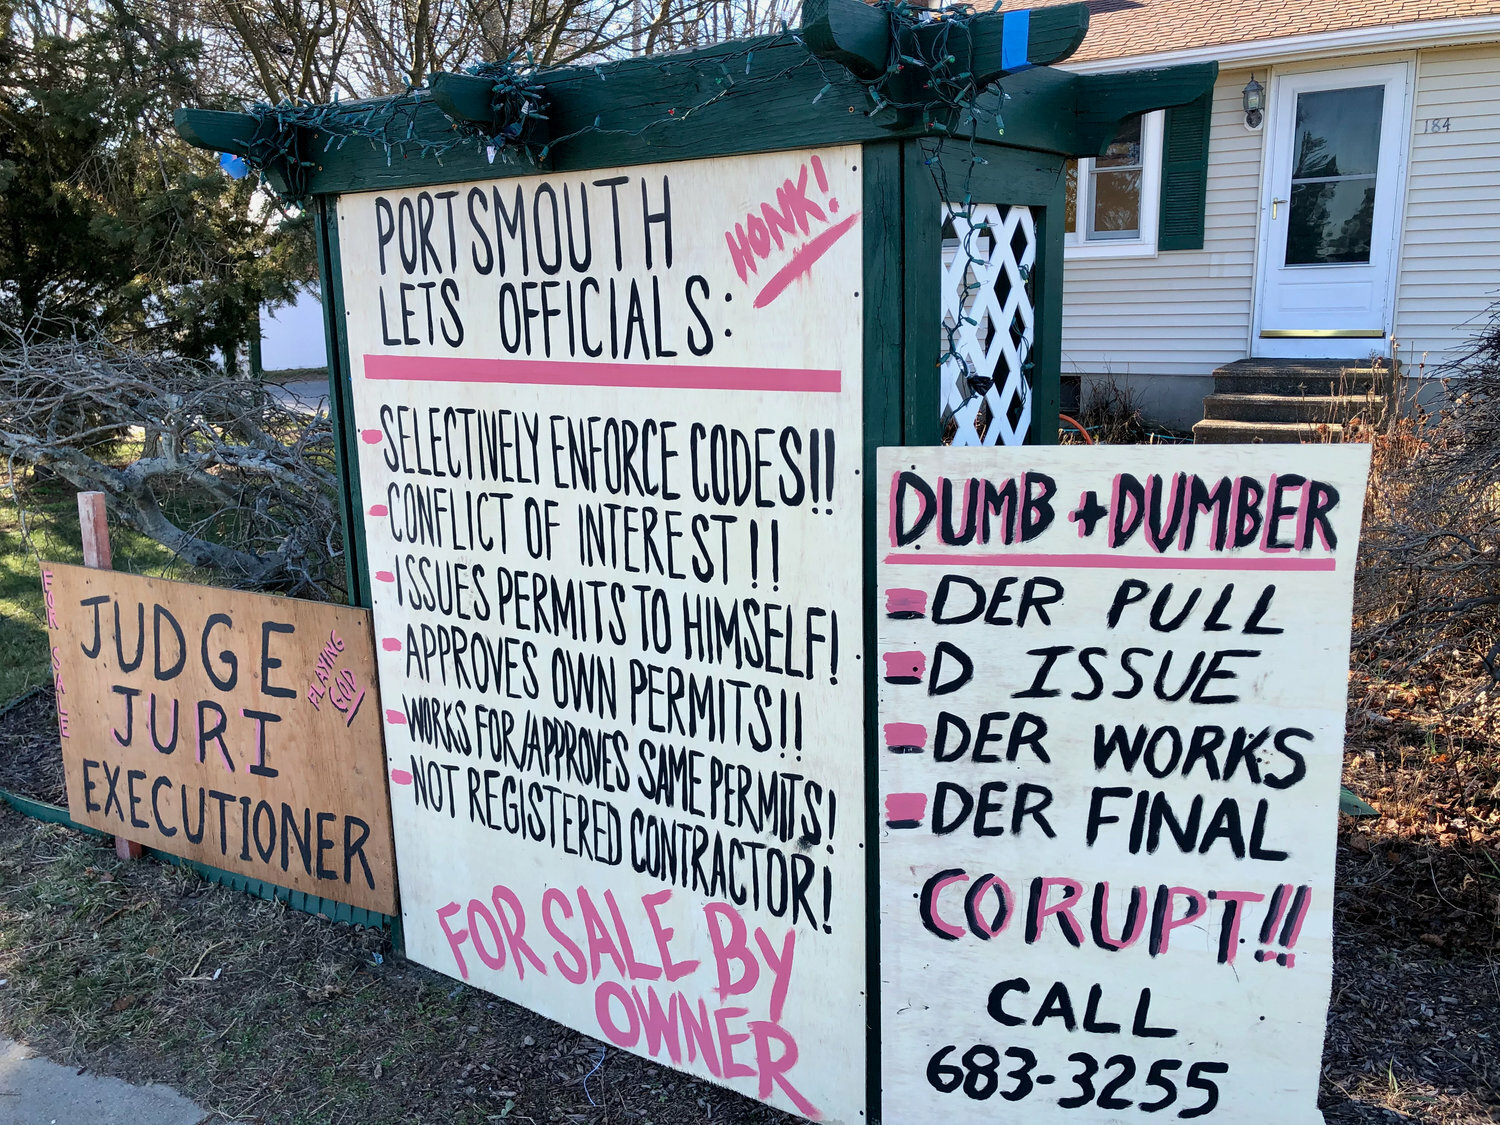 FOR SALE
JUDGE
JURI
EXECUTIONER
PLAYING
GOD
PORTSMOUTH
LETS OFFICIALS:
HONK!
-SELECTIVELY ENFORCE CODES!!
-CONFLICT OF INTEREST!!
-ISSUES PERMITS TO HIMSELF!
-APPROVES OWN PERMITS!!
-WORKS FOR/APPROVES SAME PERMITS!
-NOT REGISTERED CONTRACTOR!
FOR SALE BY
OWNER
DUMB + DUMBER
-DER PULL
-D ISSUE
-DER WORKS
-DER FINAL
CORUPT!!
CALL
683-3255
184